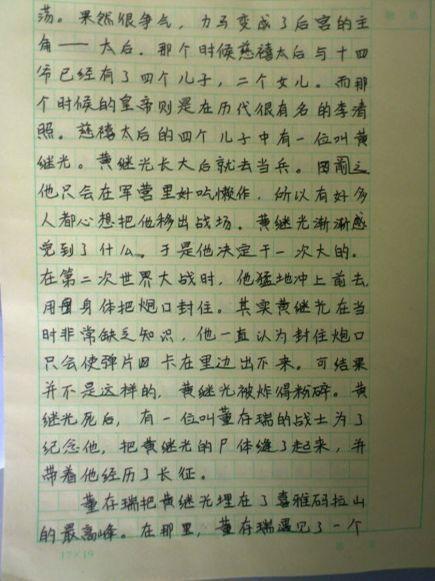 荡。果然很争气，力马变成了后宫的主
角——太后。那个时候慈禧太后与十四
爷已经有了四个儿子，二个女儿。而那
个时候的皇帝则是在历代很有名的李清
照。慈禧太后的四个儿子中有一位叫黄
继光。黄继光长大后就去当兵。因而之
他只会在军营里好吃懒作，所以有好多
人都心想把他移出战场。黄继光渐渐感
觉到了什么。于是他决定干一次大的。
在第二次世界大战时，他猛地冲上前去，
用身体把炮口封住。其实黄继光在当
时非常缺乏知识，他一直认为封住炮口
只会使弹片卡在里边出不来。可结果
并不是这样的，黄继光被炸得粉碎。黄
继光死后，有一位叫董存瑞的战士为了
纪念他，把黄继光的尸体缝了起来，并
带着他经历了长征。
董存瑞把黄继光埋在了喜雅码拉山
的最高峰。在那里，董存瑞遇见了一个
17×19